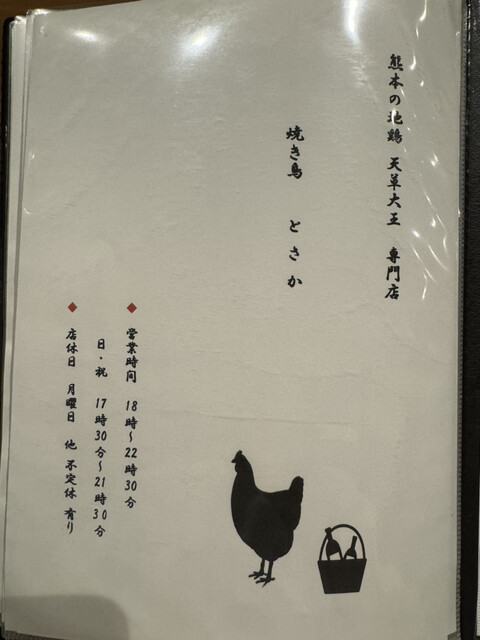 熊本の地鶏 天草大王 専門店
焼き鳥 とさか
◆ 営業時間 18時〜22時30分
日・祝 17時30分〜21時30分
◆ 店休日 月曜日 他 不定休 有り